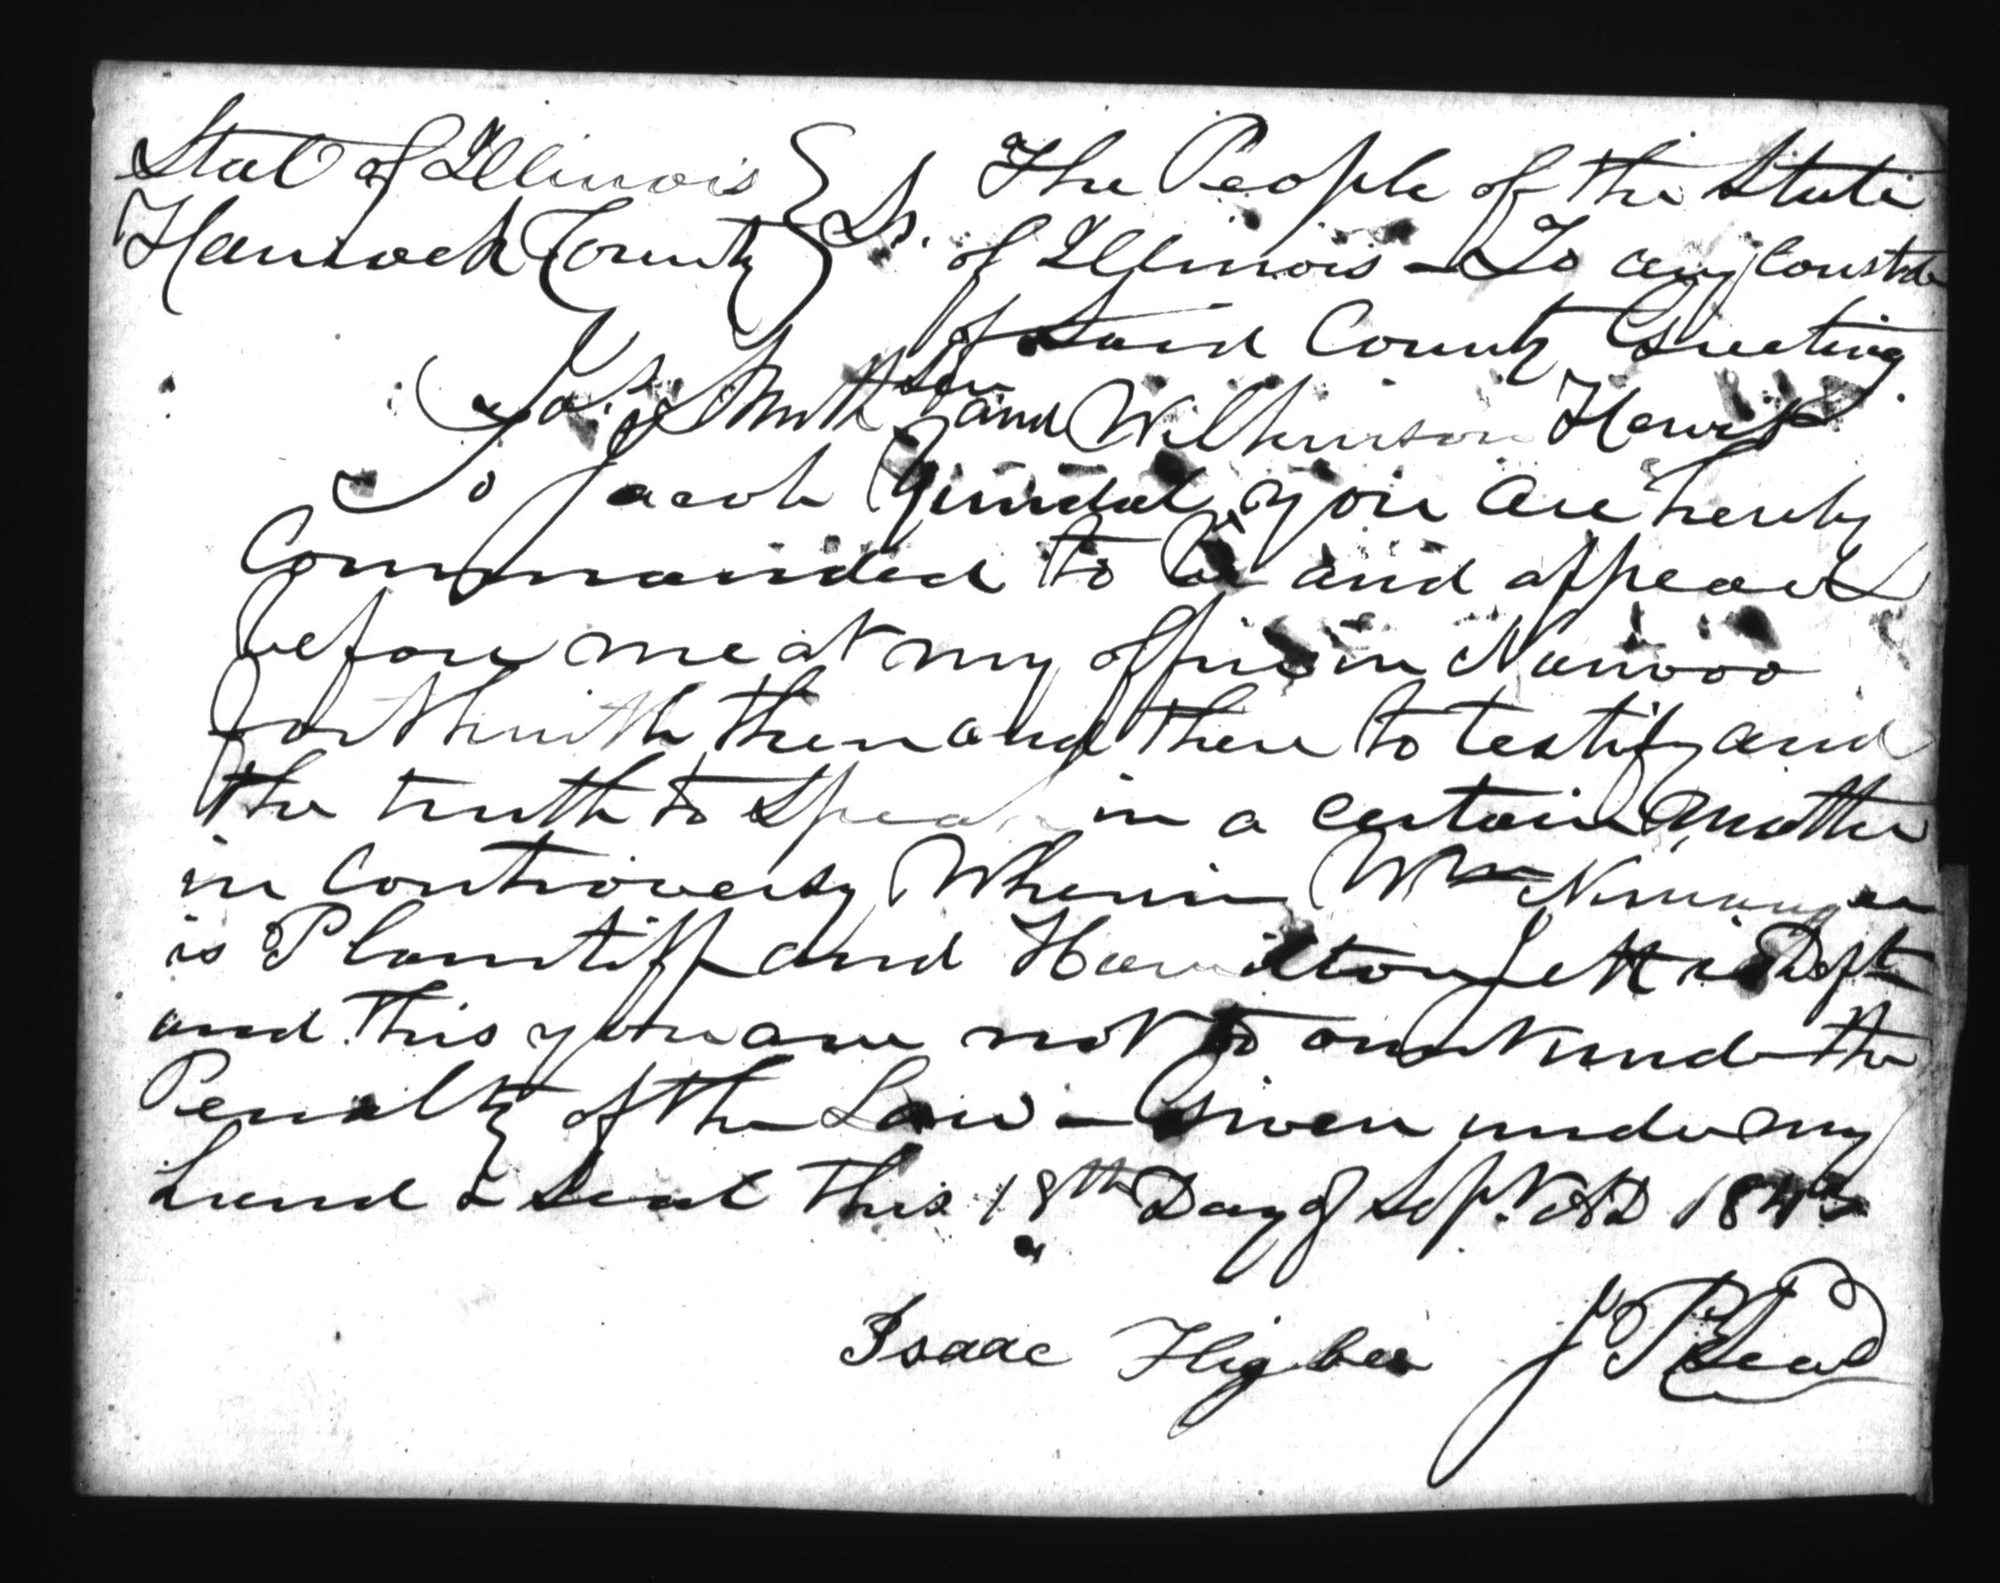 State of Illinois } The People of the State
Hancock County } Ss. of Illinois – To any Constable
of Said County Greeting
Jos. Smith Sen and Wilkinson Hewit
To Jacob you are hereby
Commanded to be and appear
before me at my office in Nauvoo
forthwith then and there to testify and
the truth to speak in a certain matter
in controversy Wherein Wm Niswanger
is Plantiff and Hamilton Jett is Deft
and this you are not to omit under the
Penalty of the Law – Given under my
hand & Seal this 18th Day of Sept. AD 1843
Isaac Higbee J P Seal